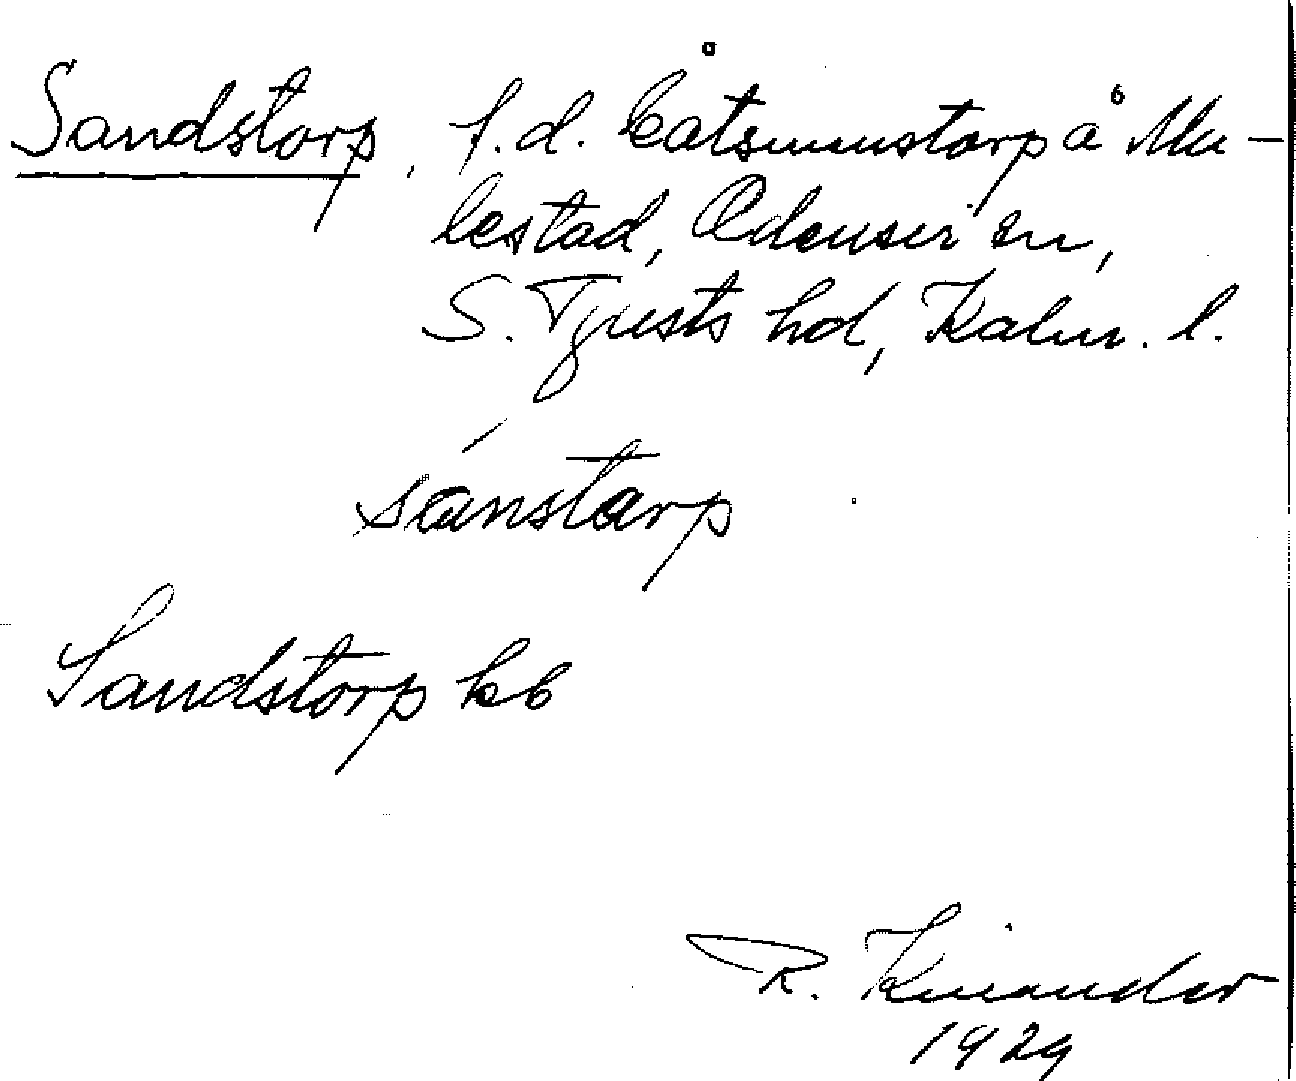 Sandstorp, f.d. båtsmanstorp å Mu-
lestad, Odensvi sn,
S. Tjusts hd, Kalm. l.
sánstarp
Sandstorp kb
R. Kinander
1929